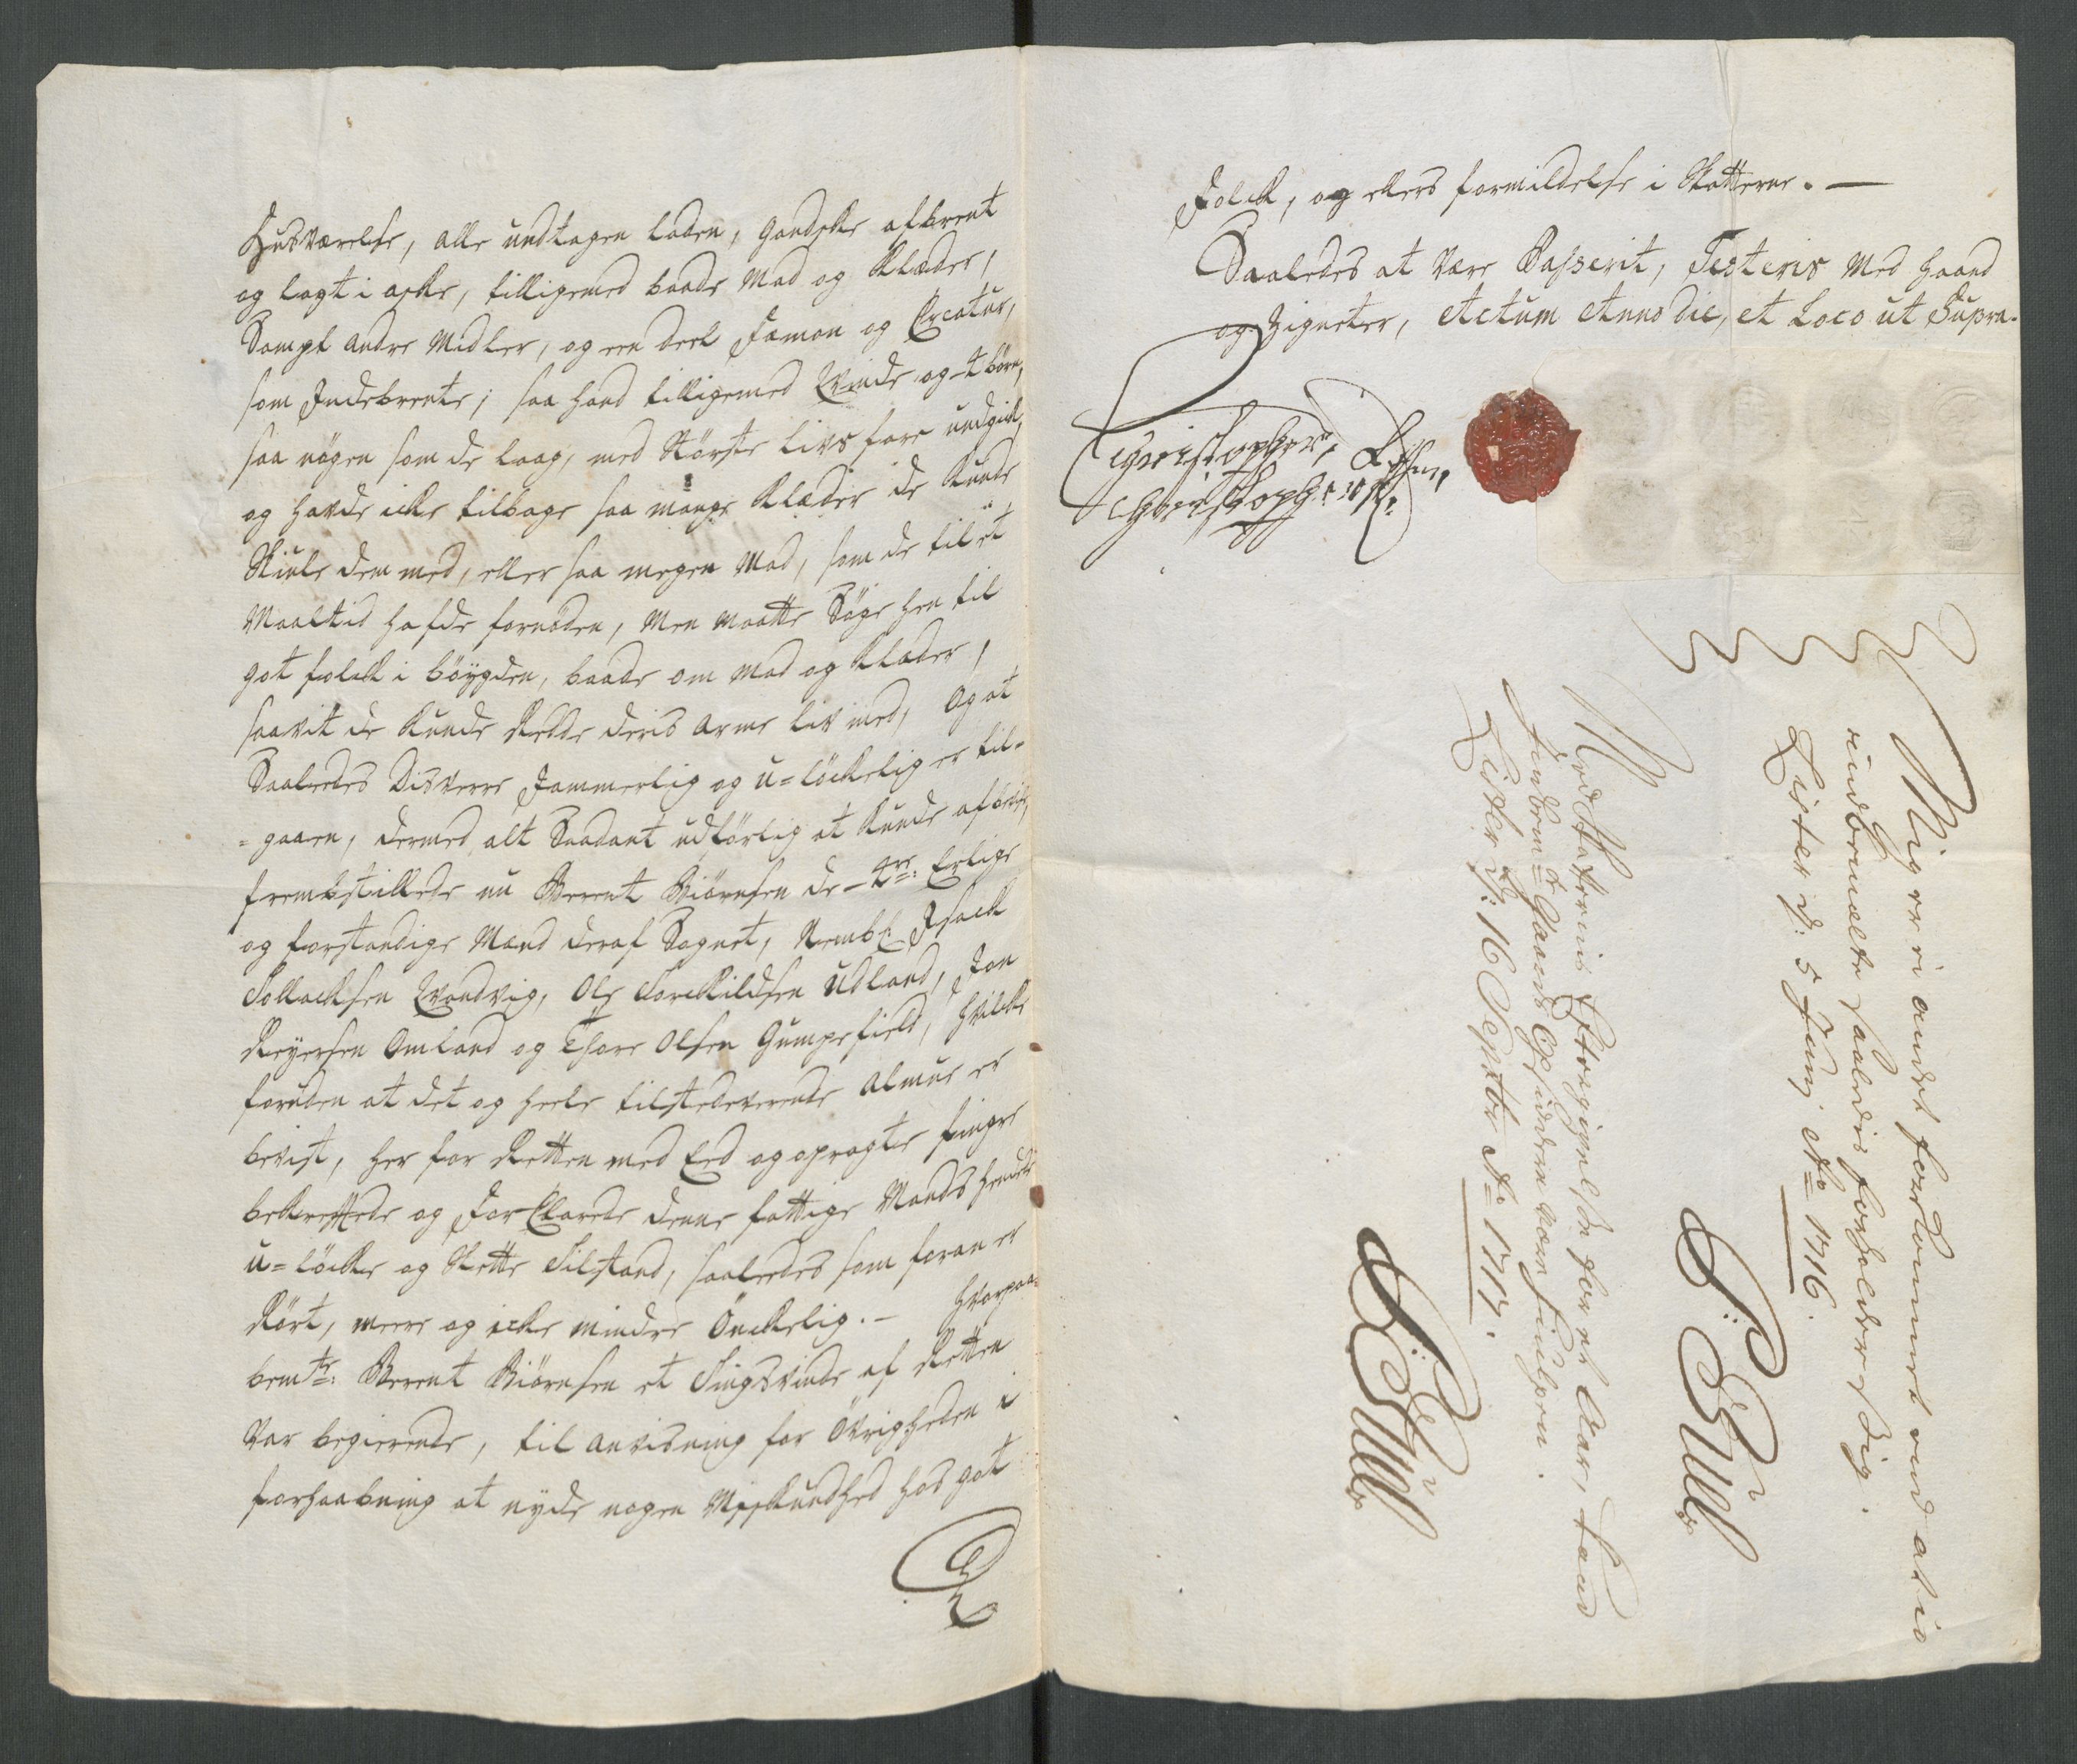 Husværelse, alle undtagen laden, gandske afbrent
og lagt i aske, tilligemed baade Mad og Klæder,
Sampt andre Midler, og een deel Famon og Creatur,
som Indebrente; saa hand tilligemed Qvinde og - børn,
saa nøgen som de laag, med Største livs fare undgick,
og havde icke tilbage saa mange Klæder de Kunde
Skiule dem med, eller saa megen Mad, som de til et
Maaltid hafde fornøden, Men maatte Søge hen til
got folck i bøygden, baade om Mad og Klæder,
saavit de Kunde Redde deris arme liv med, Og at
Saaledes Disverre Jammerlig og u=löckelig er til=
=gaaen, dermed alt Saadant udførlig at Kunde afbevise,
fremstillede nu Berent Biörnsen de - Erlige
og forstandige Mænd deraf Sognet, Nembl: Isack
Tollacksen Qvandvig, Ole Torckildsen Udland, Jon
Reyersen Omland og Thore Olsen Gumpefield, hvilcke
foruden at det og heele tilstedeverende Almue er
bevist, her for Retten med Eed og opragte finger
bekrefftede og forklarede denne fattige Mands hendte
u=löcke og Slette Tilstand, saaledes som foran er
Rört, meere og icke mindre Önckelig. - Hvorpaa
bemte: Berent Biörnsen et Tingsvinde af Retten
Var begierende, til anvisning for Övrigheden i
forhaabning at nyde nogen Miskundhed hos got
Folck, og ellers formildelse i Skatterne. -
Saaledes at være Passerit, Testeris Med haand
og Zigneter, Actum Anno die, et Loco ut Supra.
Christopher
Christophersen
Mig er ei andet forekommet end at io
indbemelte saaledis forholder sig.
Lister d: 5 Junij Ao 1716.
S: Bull
Med Skatternis Eftergivelse for et Aar, kand
Indbem:te Gaards Opsiddere være hiulpen.
Lister d: 16 Septbr Ao 1717.
S: Bull